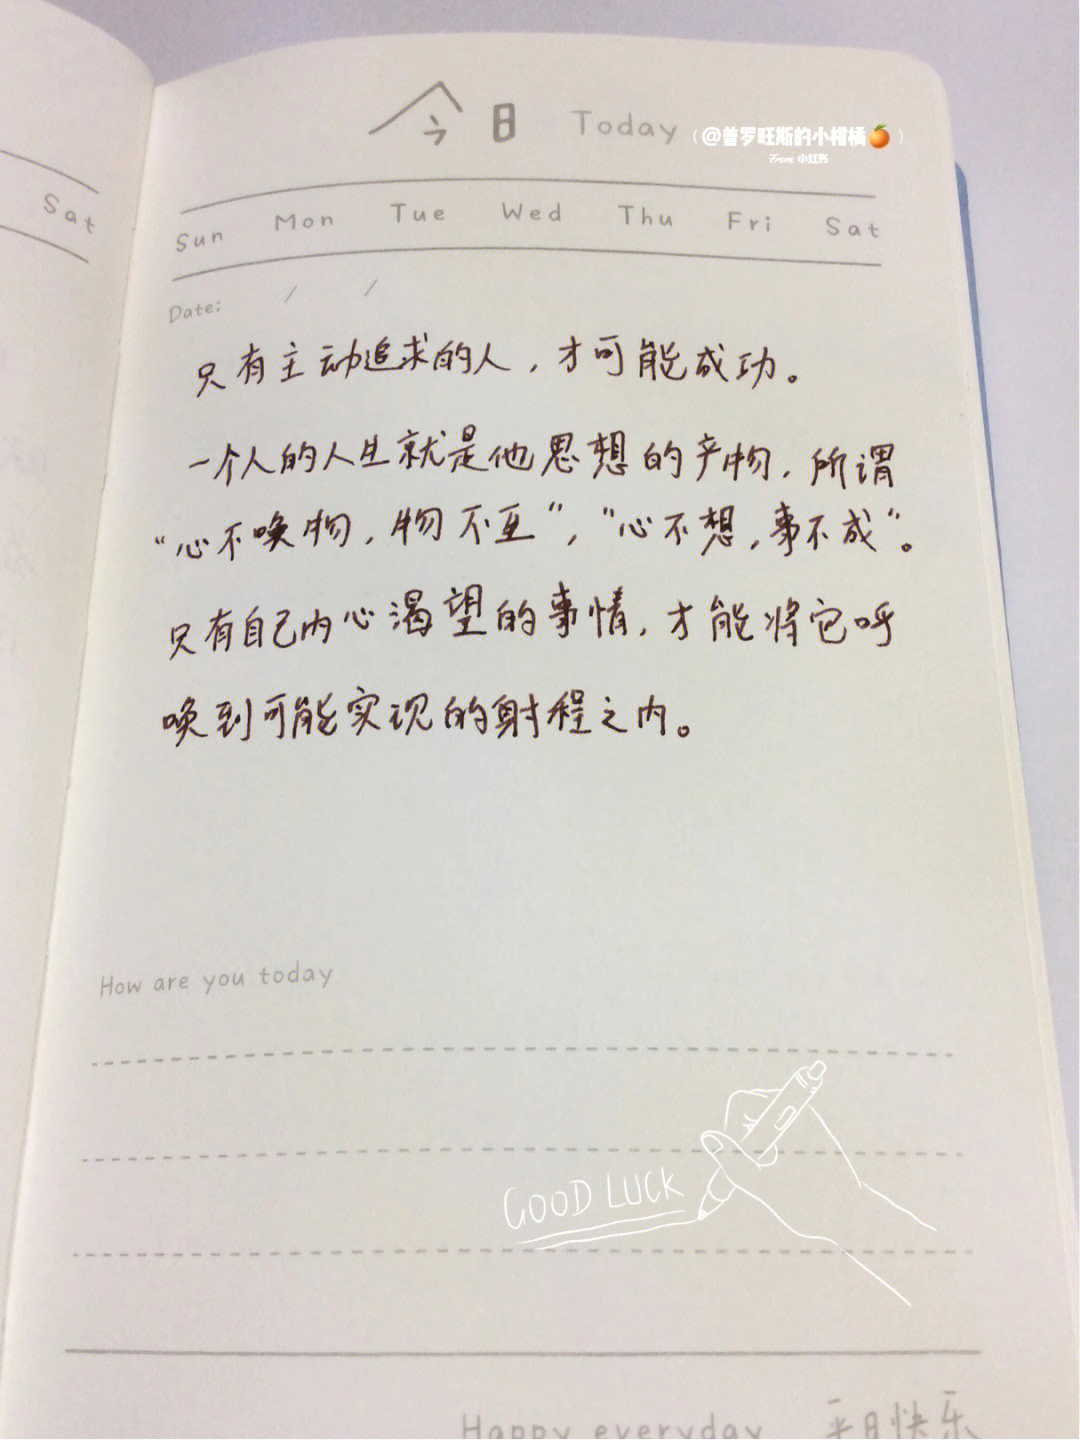 今日 Today (@普罗旺斯的小柑橘🍊)
From 小红书
Sat
Sun Mon Tue Wed Thu Fri Sat
Date: / /
只有主动追求的人，才可能成功。
一个人的人生就是他思想的产物，所谓
“心不唤物，物不至”，“心不想，事不成”。
只有自己内心渴望的事情，才能将它呼
唤到可能实现的射程之内。
How are you today
GOOD LUCK
Happy everyday 日快乐